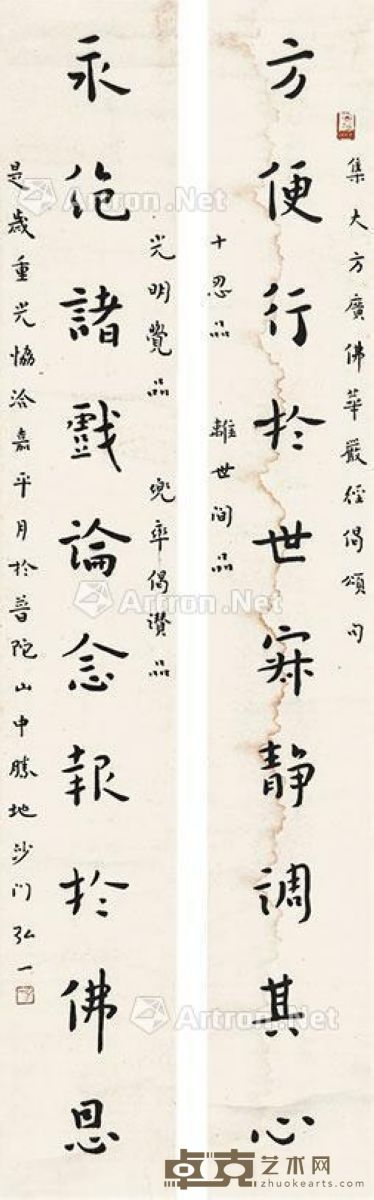 集大方廣佛華嚴經偈頌句
方便行於世寂靜調其心
十忍品 離世间品
光明覺品 兜率偈讚品
永绝諸戲論念報於佛恩
是歲重光協洽嘉平月於普陀山中勝地沙门弘一
Artron.Net
Artron.Net
Artron.Net
Artron.Net
Artron.Net
Artron.Net
卓克艺术网
zhuokearts.com